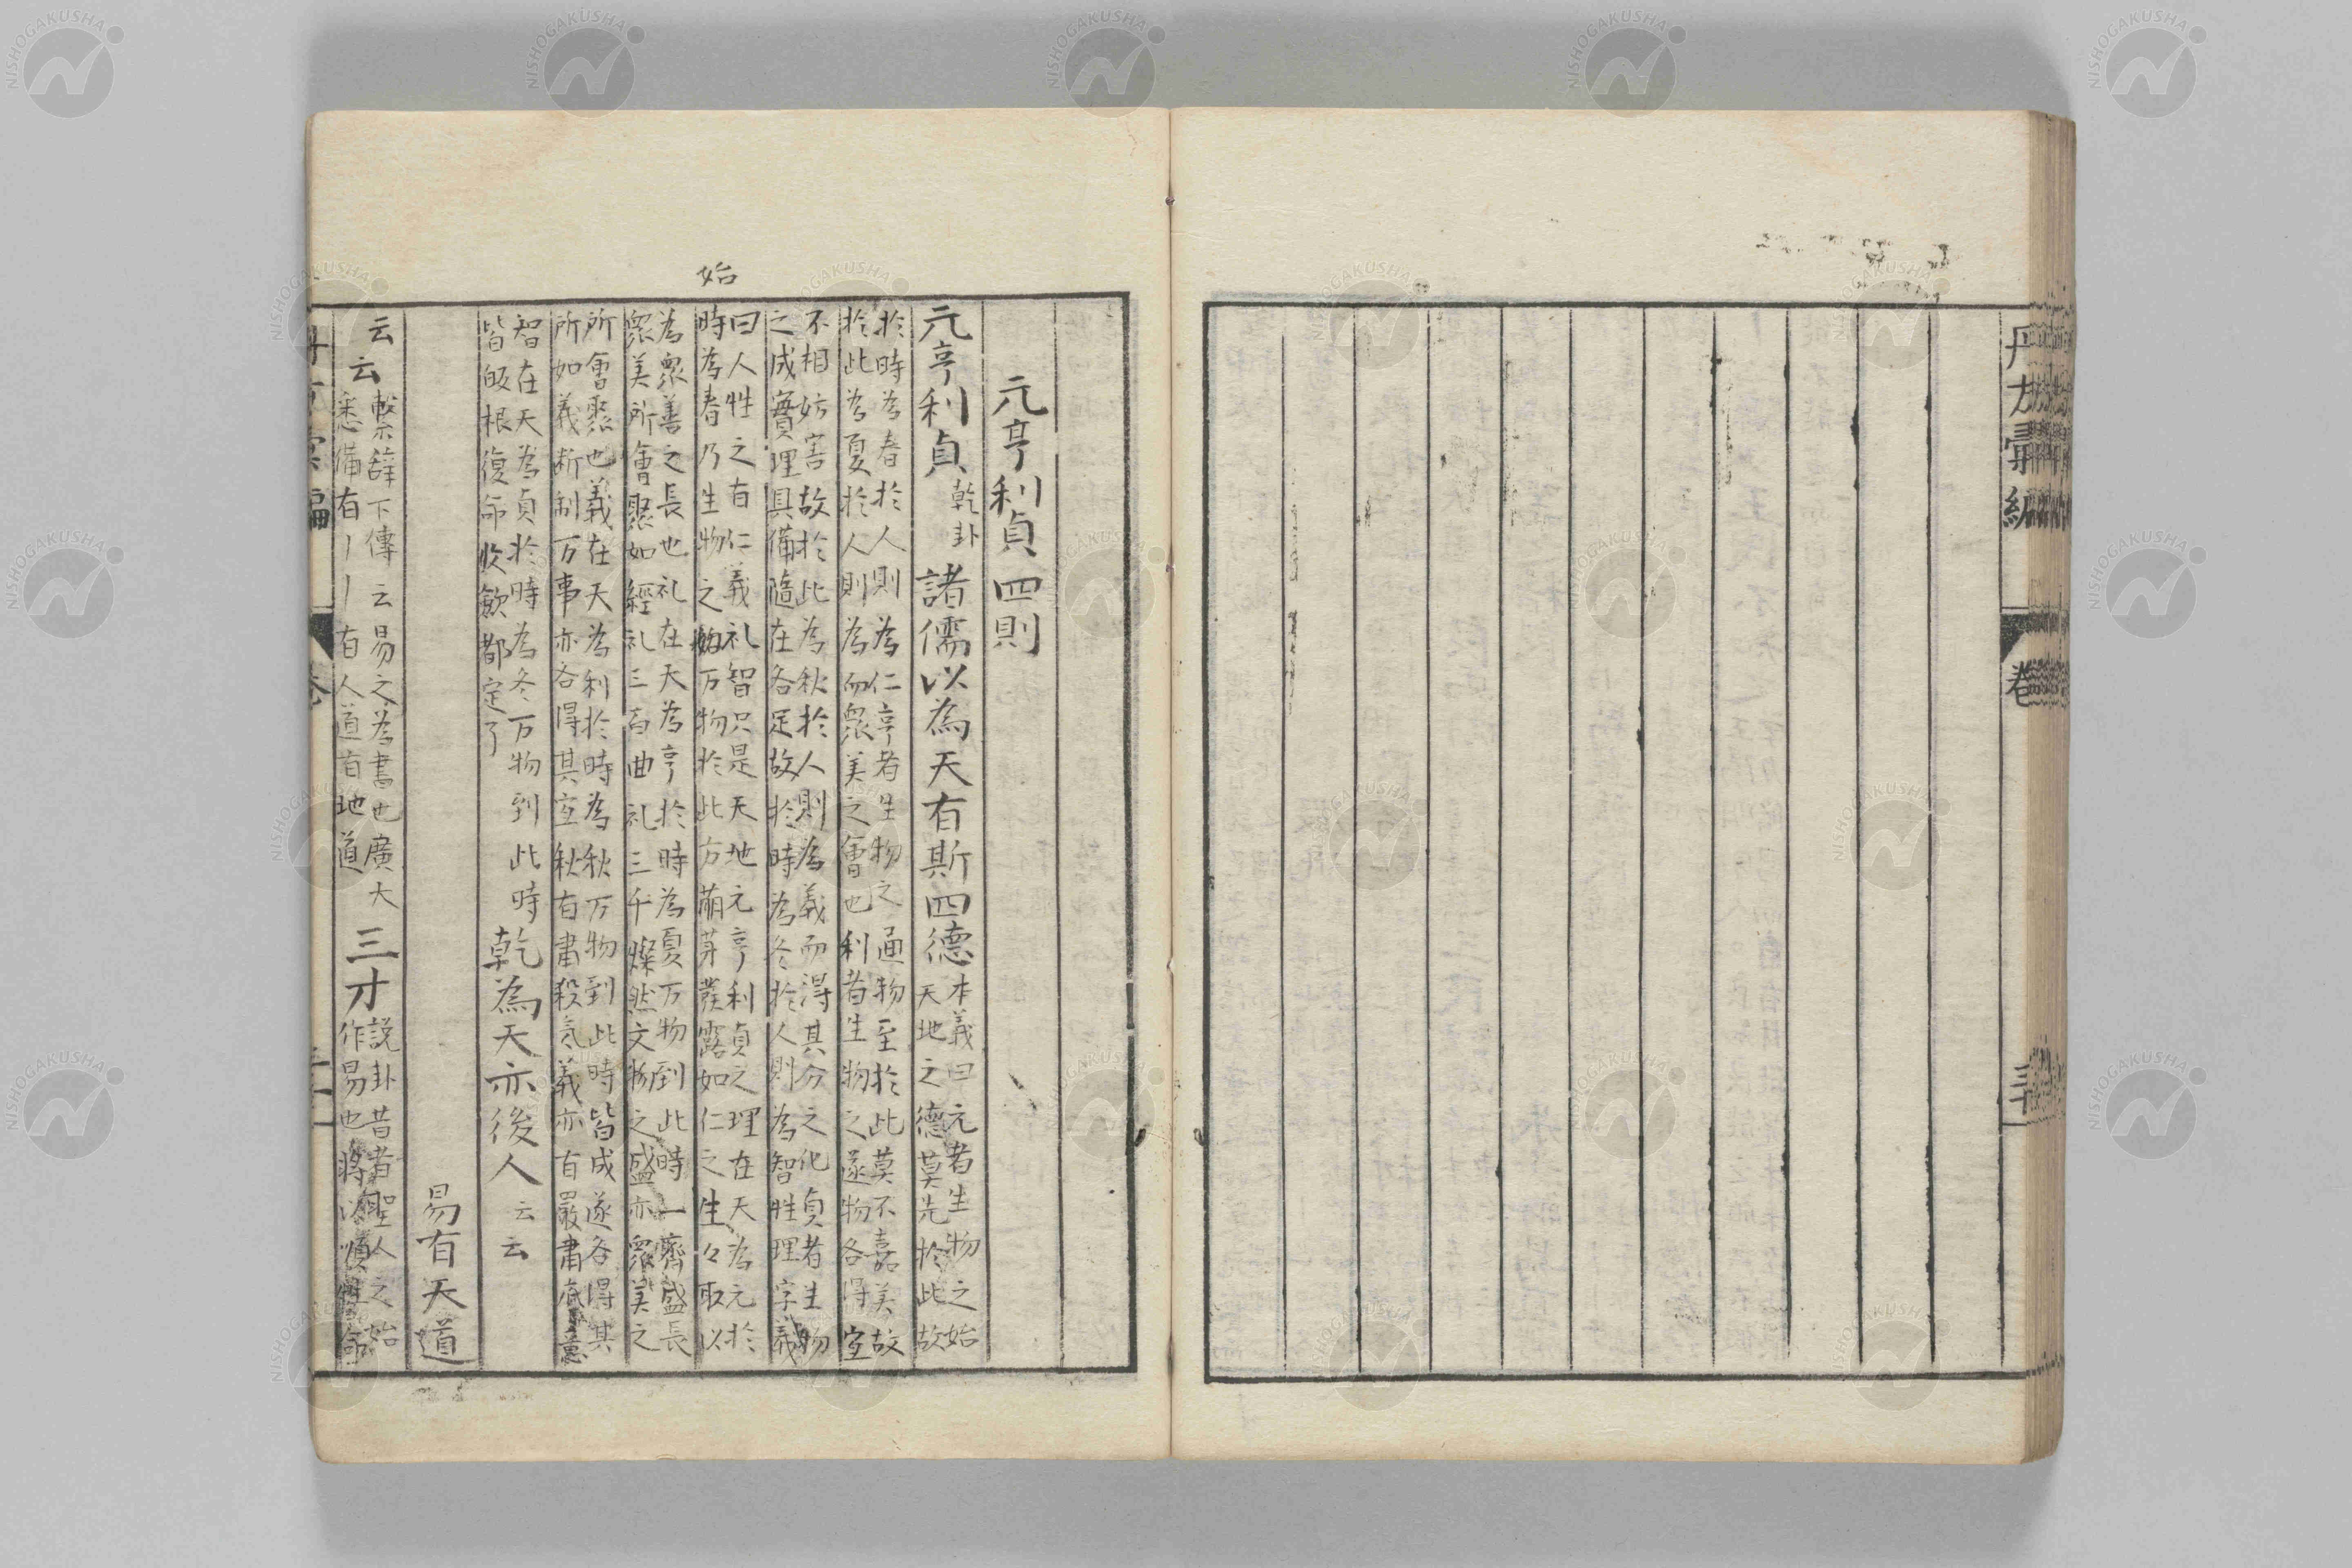 丹方彙編
卷
三十
始
元亨利貞四則
元亨利貞
乾卦
諸儒以為天有斯四德
本義曰元者生物之始
天地之德莫先於此故
於時為春於人則為仁亨者生物之通物至於此莫不嘉美故
於此為夏於人則為而眾美之會也利者生物之遂物各得宜
不相妨害故於此為秋於人則為義而得其分之化貞者生物
之成實理具備隨在各足故於時為冬於人則為智性理字義
曰人性之有仁義礼智只是天地元亨利貞之理在天為元於
時為春乃生物之始万物於此方萠芽發露如仁之生々取以
為眾善之長也礼在天為亨於時為夏万物到此時一齊盛長
眾美所會聚如經礼三百曲礼三千燦然文物之盛亦眾美之
所會聚也義在天為利於時為秋万物到此時皆成遂各得其
所如義断制万事亦各得其宜秋有肅殺気義亦有嚴肅底意
智在天為貞於時為冬万物到此時
皆皈根復命收斂都定了
乾為天亦後人
云云
易有天道
云云
繫辭下傳云易之為書也廣大
悉備有丨丨有人道有地道
三才
説卦昔者聖人之
作易也將以順性命
丹方彙編
卷